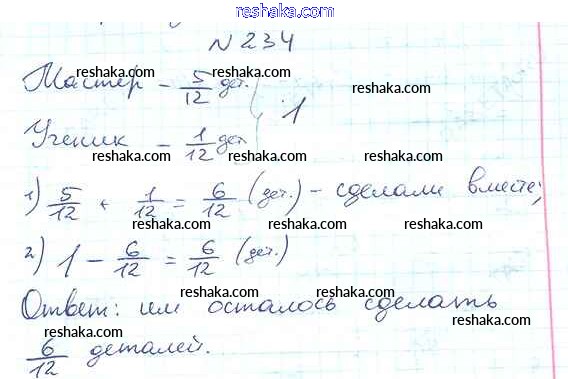 reshaka.com
N 234
reshaka.com reshaka.com
Мастер - 5/12 дет.
reshaka.com reshaka.com
1
Ученик - 1/12 дет
reshaka.com reshaka.com
1) 5/12 + 1/12 = 6/12 (дет.) - сделали вместе;
reshaka.com reshaka.com
2) 1 - 6/12 = 6/12 (дет.)
reshaka.com reshaka.com
Ответ: им осталось сделать
reshaka.com reshaka.com
6/12 деталей.
reshaka.com